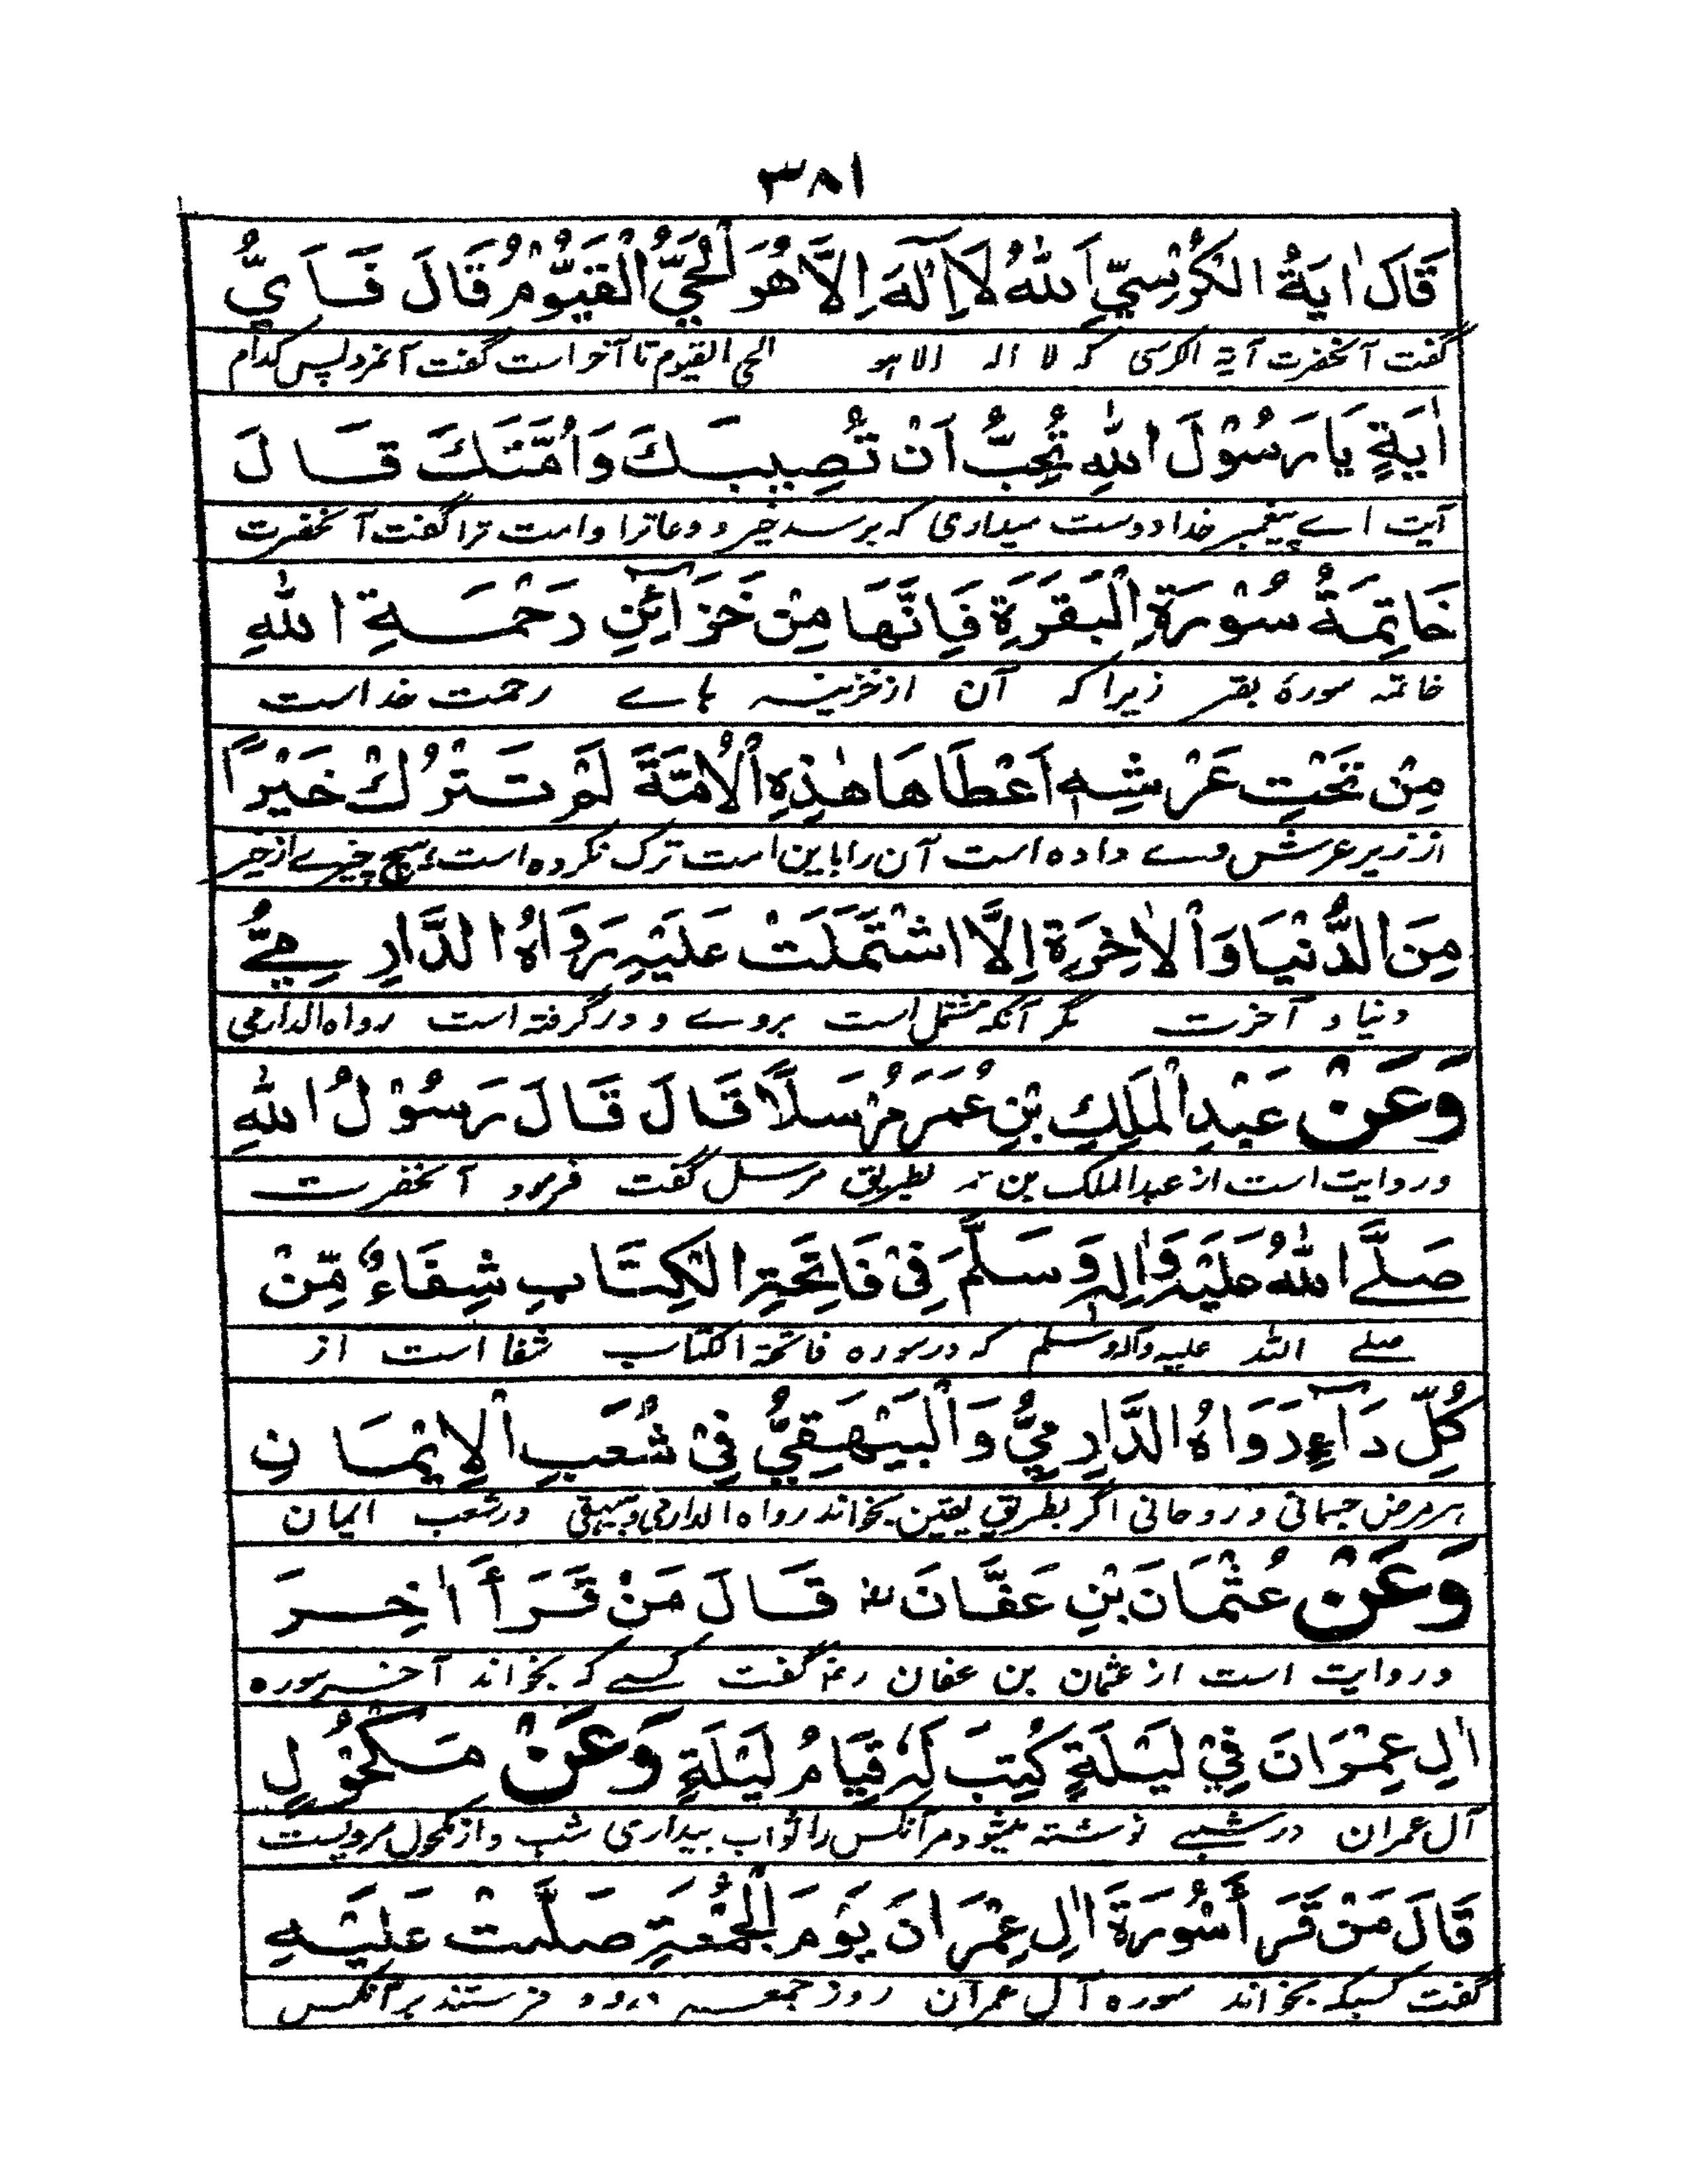 ٣٨١
قَالَ اٰيَةُ الْكُرْسِيِّ اَللّٰهُ لَا اِلٰهَ اِلَّا هُوَ الْحَيُّ الْقَيُّوْمُ قَالَ فَاَيُّ
گفت آنحضرت آیة الکرسی که لا اله الا هو الحی القیوم تا آخر است گفت آنمرد پس کدام
اٰيَةٍ يَا رَسُوْلَ اللّٰهِ تُحِبُّ اَنْ تُصِيبَكَ وَاُمَّتَكَ قَالَ
آیت اے پیغمبر خدا دوست میداری که برسد خیر و دعا ترا و امت ترا گفت آنحضرت
خَاتِمَةُ سُوْرَةِ الْبَقَرَةِ فَاِنَّهَا مِنْ خَزَآئِنِ رَحْمَةِ اللّٰهِ
خاتمه سورۀ بقر زیرا که آن از خزینه ہاے رحمت خداست
مِنْ تَحْتِ عَرْشِهٖ اَعْطَاهَا هٰذِهِ الْاُمَّةَ لَمْ تَتْرُكْ خَيْرًا
از زیر عرش وے داده است آن را باین امت ترک نکرده است هیچ چیزے از خیر
مِنَ الدُّنْيَا وَالْاٰخِرَةِ اِلَّا اشْتَمَلَتْ عَلَيْهِ رَوَاهُ الدَّارِمِيُّ
دنیا و آخرت مگر آنکه مشتمل است بروے و در گرفته است رواه الدارمی
وَعَنْ عَبْدِ الْمَلِكِ بْنِ عُمَرَ مُرْسَلًا قَالَ قَالَ رَسُوْلُ اللّٰهِ
و روایت است از عبد الملک بن بطریق مرسل گفت فرمود آنحضرت
صَلَّے اللّٰهُ عَلَيْهِ وَاٰلِهٖ وَسَلَّمَ فِيْ فَاتِحَةِ الْكِتَابِ شِفَاءٌ مِّنْ
صلے الله علیه وآله وسلم که در سوره فاتحة الکتاب شفا است از
كُلِّ دَآءٍ رَوَاهُ الدَّارِمِيُّ وَالْبَيْهَقِيُّ فِيْ شُعَبِ الْاِيْمَانِ
ہر مرض جسمانی و روحانی اگر بطریق یقین بخواند رواه الدارمی وبیہقی در شعب ایمان
وَعَنْ عُثْمَانَ بْنِ عَفَّانَ رض قَالَ مَنْ قَرَأَ اٰخِرَ
و روایت است از عثمان بن عفان رض گفت کسے که بخواند آخر سوره
اٰلِ عِمْرَانَ فِيْ لَيْلَةٍ كُتِبَ لَهٗ قِيَامُ لَيْلَةٍ وَعَنْ مَكْحُوْلٍ
آل عمران در شبے نوشته میشود مر آنکس را ثواب بیداری شب و از مکحول مرویست
قَالَ مَنْ قَرَأَ سُوْرَةَ اٰلِ عِمْرَانَ يَوْمَ الْجُمُعَةِ صَلَّتْ عَلَيْهِ
گفت کسیکه بخواند سوره آل عمران روز جمعه درود فرستند بر آنکس